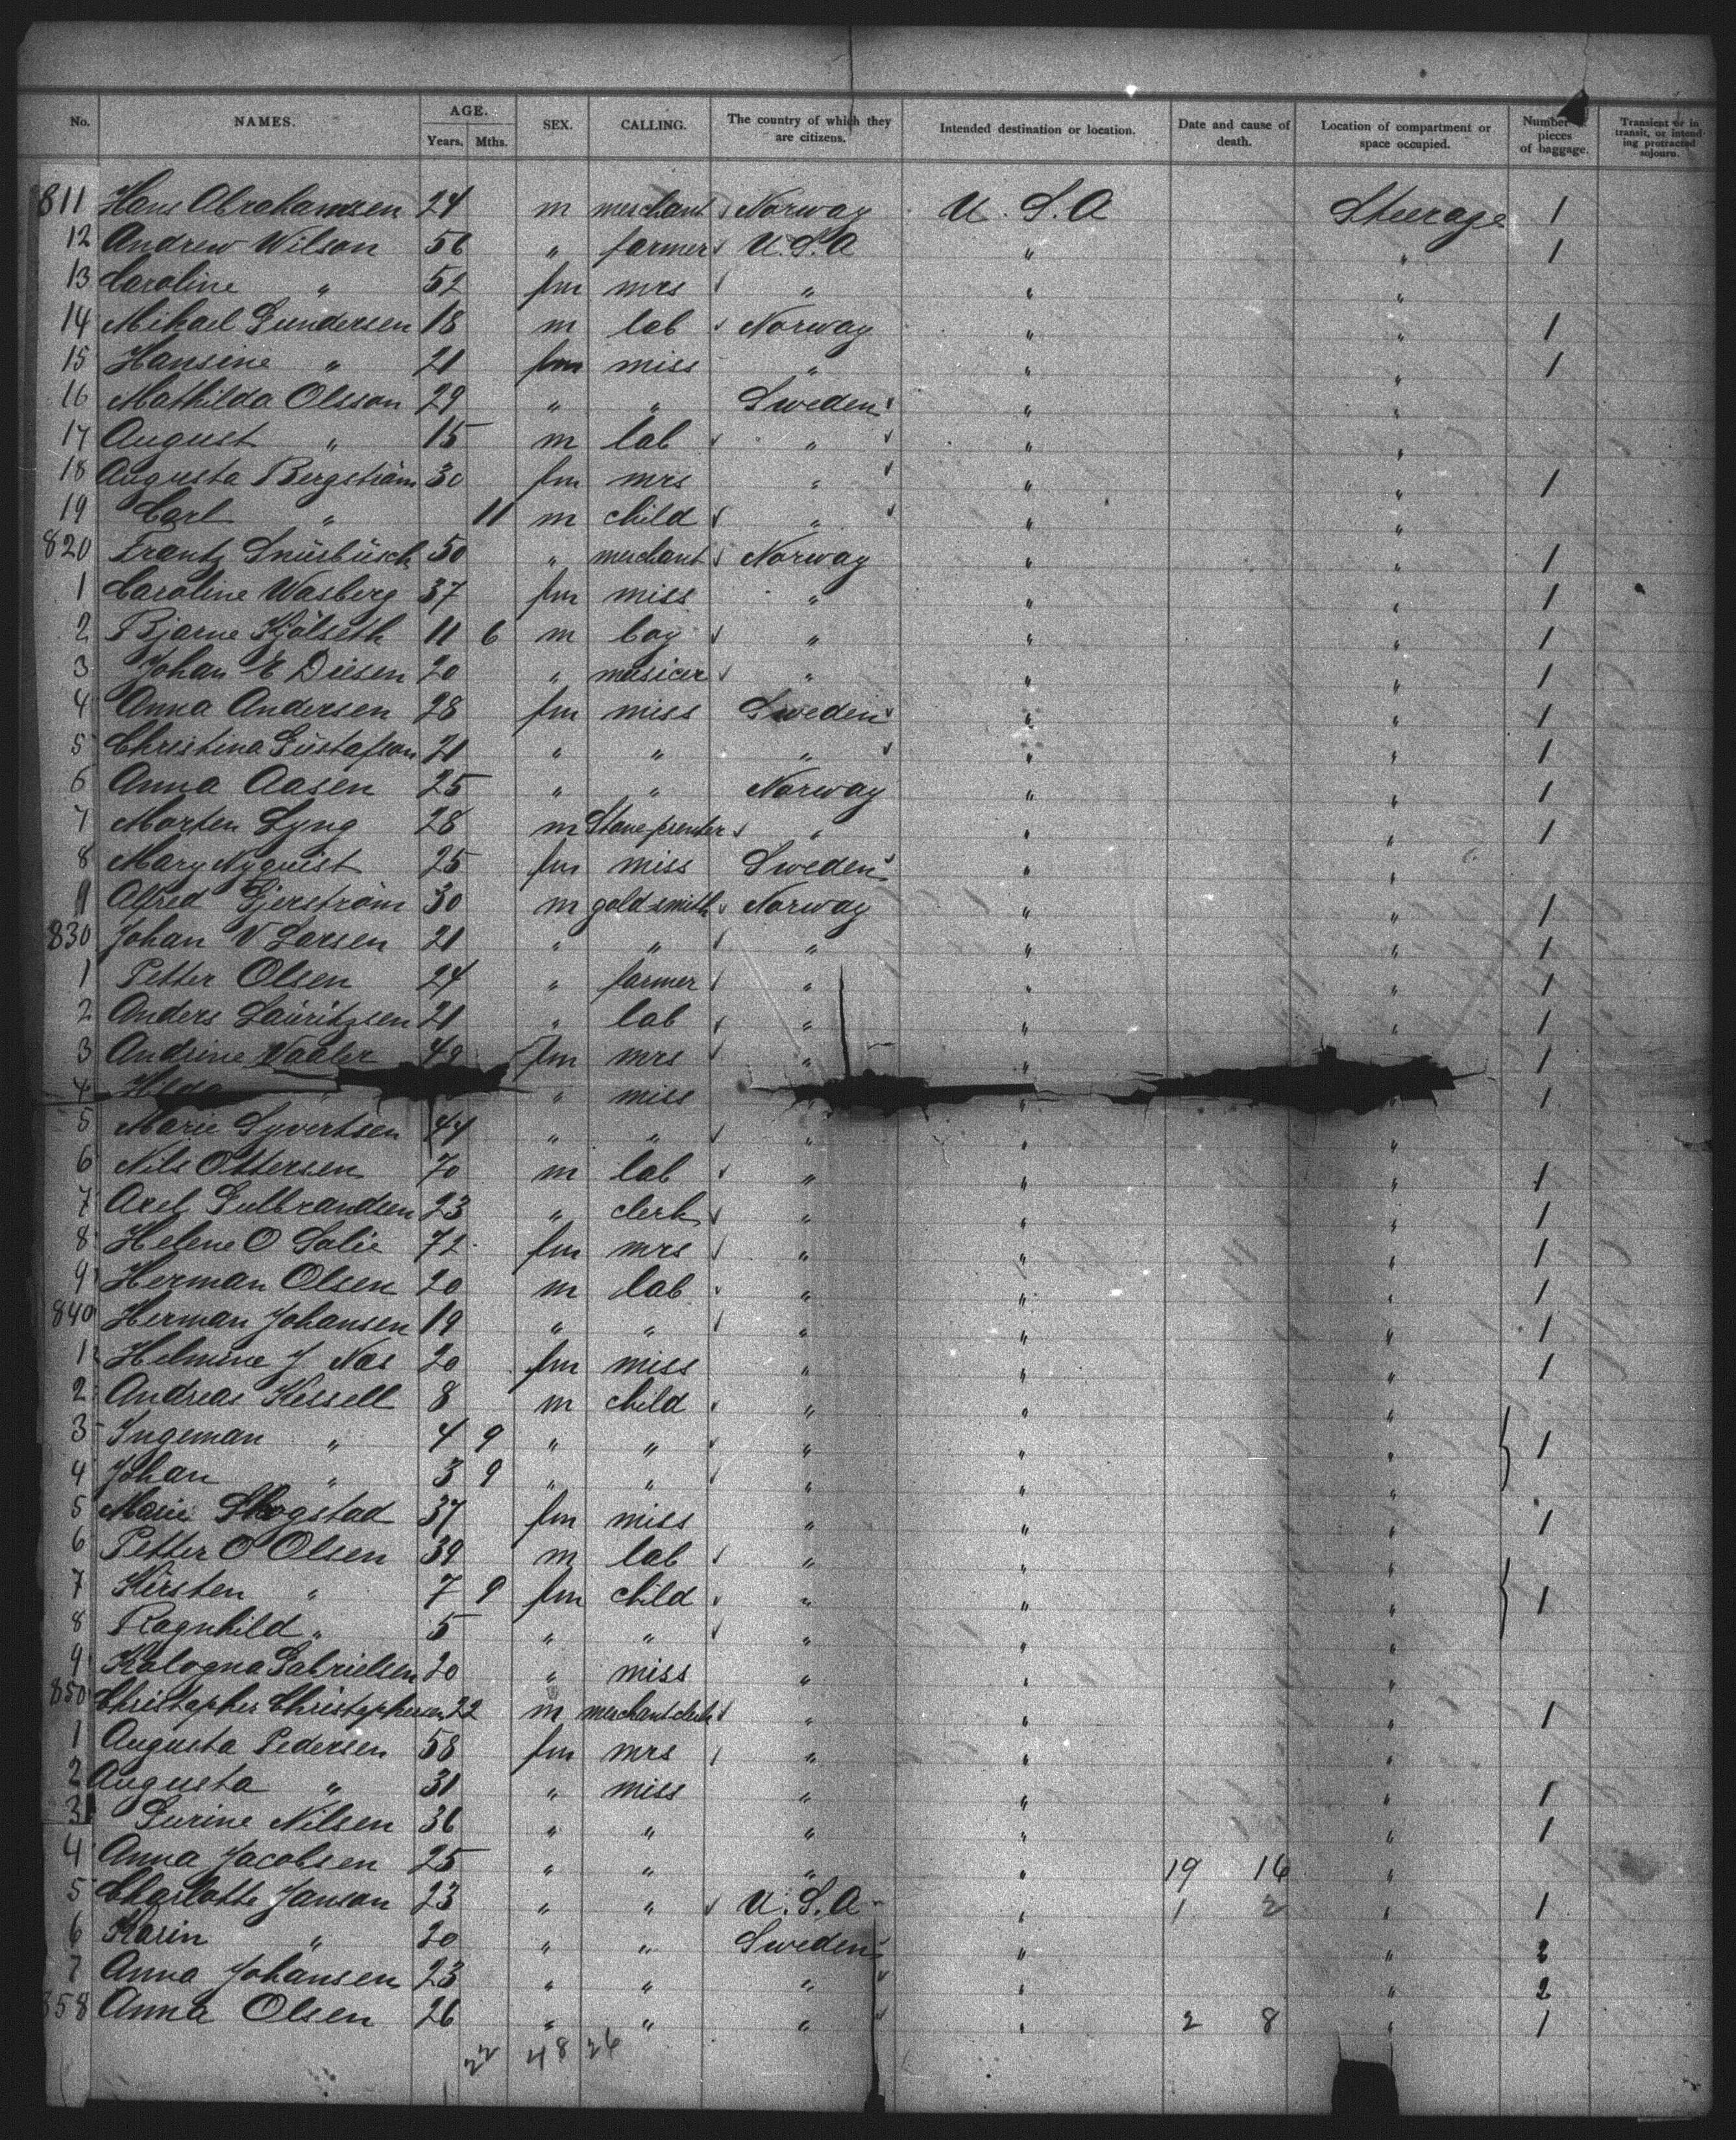 No. NAMES. AGE. Years. Mths. SEX. CALLING. The country of which they are citizens. Intended destination or location. Date and cause of death. Location of compartment or space occupied. Number pieces of baggage. Transient or in transit, or intending protracted sojourn.
811 Hans Abrahamsen 24 m merchant Norway U.S.A Steerage 1
12 Andrew Wilson 56 " farmer U.S.A " " 1
13 Caroline " 52 fm mrs " " "
14 Mikael Gundersen 18 m lab Norway " " 1
15 Hansine " 21 fm miss " " " 1
16 Mathilda Olsson 29 " " Sweden " "
17 August " 15 m lab " " "
18 Augusta Bergström 30 fm mrs " " " 1
19 Carl " 11 m child " " "
820 Frantz 50 " merchant Norway " " 1
1 Caroline Wasberg 37 fm miss " " " 1
2 Bjarne Kjölseth 11 6 m boy " " " 1
3 Johan E Diesen 20 " musicer " " " 1
4 Anna Andersen 28 fm miss Sweden " " 1
5 Christina Gustafson 21 " " " " " 1
6 Anna Aasen 25 " " Norway " " 1
7 Morten Lyng 28 m " " " 1
8 Mary Nyquist 25 fm miss Sweden " "
9 Alfred Gjerström 30 m goldsmith Norway " " 1
830 Johan V Larsen 21 " " " " " 1
1 Petter Olsen 24 " farmer " " " 1
2 Anders Lauritzsen 21 " lab " " " 1
3 Andrine Vaaler 49 fm mrs " " 1
4 Hilda " " miss " " 1
5 Marie Syvertsen 44 " " " " "
6 Nils Ottersen 70 m lab " " " 1
7 Axel Gulbrandsen 23 " clerk " " " 1
8 Helene O Solie 72 fm mrs " " " 1
9 Herman Olsen 20 m lab " " " 1
840 Herman Johansen 19 " " " " " 1
1 Helmine J Nas 20 fm miss " " " 1
2 Andreas Kessell 8 m child " " "
3 Ingeman " 4 9 " " " " " 1
4 Johan " 3 9 " " " " "
5 Marie Skogstad 37 fm miss " " " 1
6 Petter O Olsen 39 m lab " " "
7 Kirsten " 7 9 fm child " " " 1
8 Ragnhild " 5 " " " " "
9 Kalogna Gabrielsen 20 " miss " " "
850 Christopher Christophersen 22 m merchant clerk " " " 1
1 Augusta Pedersen 58 fm mrs " " "
2 Augusta " 31 " miss " " " 1
3 Gurine Nilsen 36 " " " " " 1
4 Anna Jacobsen 25 " " " " 19 16 "
5 Charlotte Janson 23 " " U.S.A " 1 2 " 1
6 Karin " 20 " " Sweden " " 2
7 Anna Johansen 23 " " " " " 2
858 Anna Olsen 26 " " " " 2 8 " 1
22 48 26